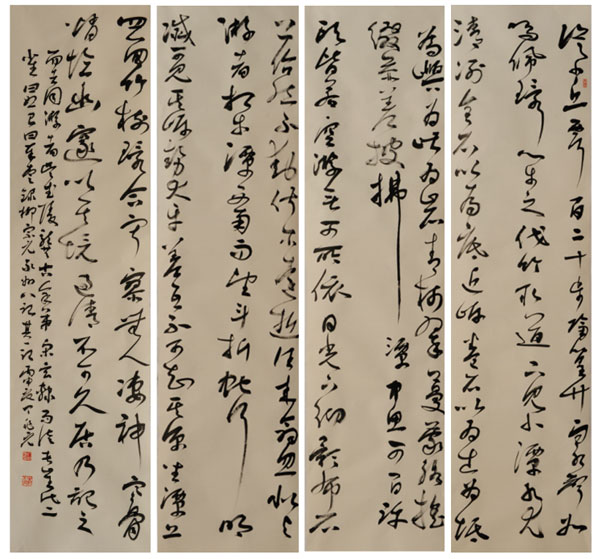 從小丘西行百二十步隔篁竹聞水聲如
鳴佩環心樂之伐竹取道下見小潭水尤
清冽全石以為底近岸卷石以為出為坻
為嶼為嵁為岩青樹翠蔓蒙絡搖
綴參差披拂潭中魚可百許
頭皆若空游無可所依日光下徹影布石
上佁然不動俶爾遠逝往來翕忽似與
游者相樂潭西南而望斗折蛇行明
滅可見其岸勢犬牙差互不可知其源坐潭上
四面竹樹環合寂寥無人凄神寒骨
悄愴幽邃以其境過清不可久居乃記之
而去同游者吳武陵龔古余弟宗玄隸而從者崔氏二
生曰恕己曰奉壹錄柳宗元永州八記其一記